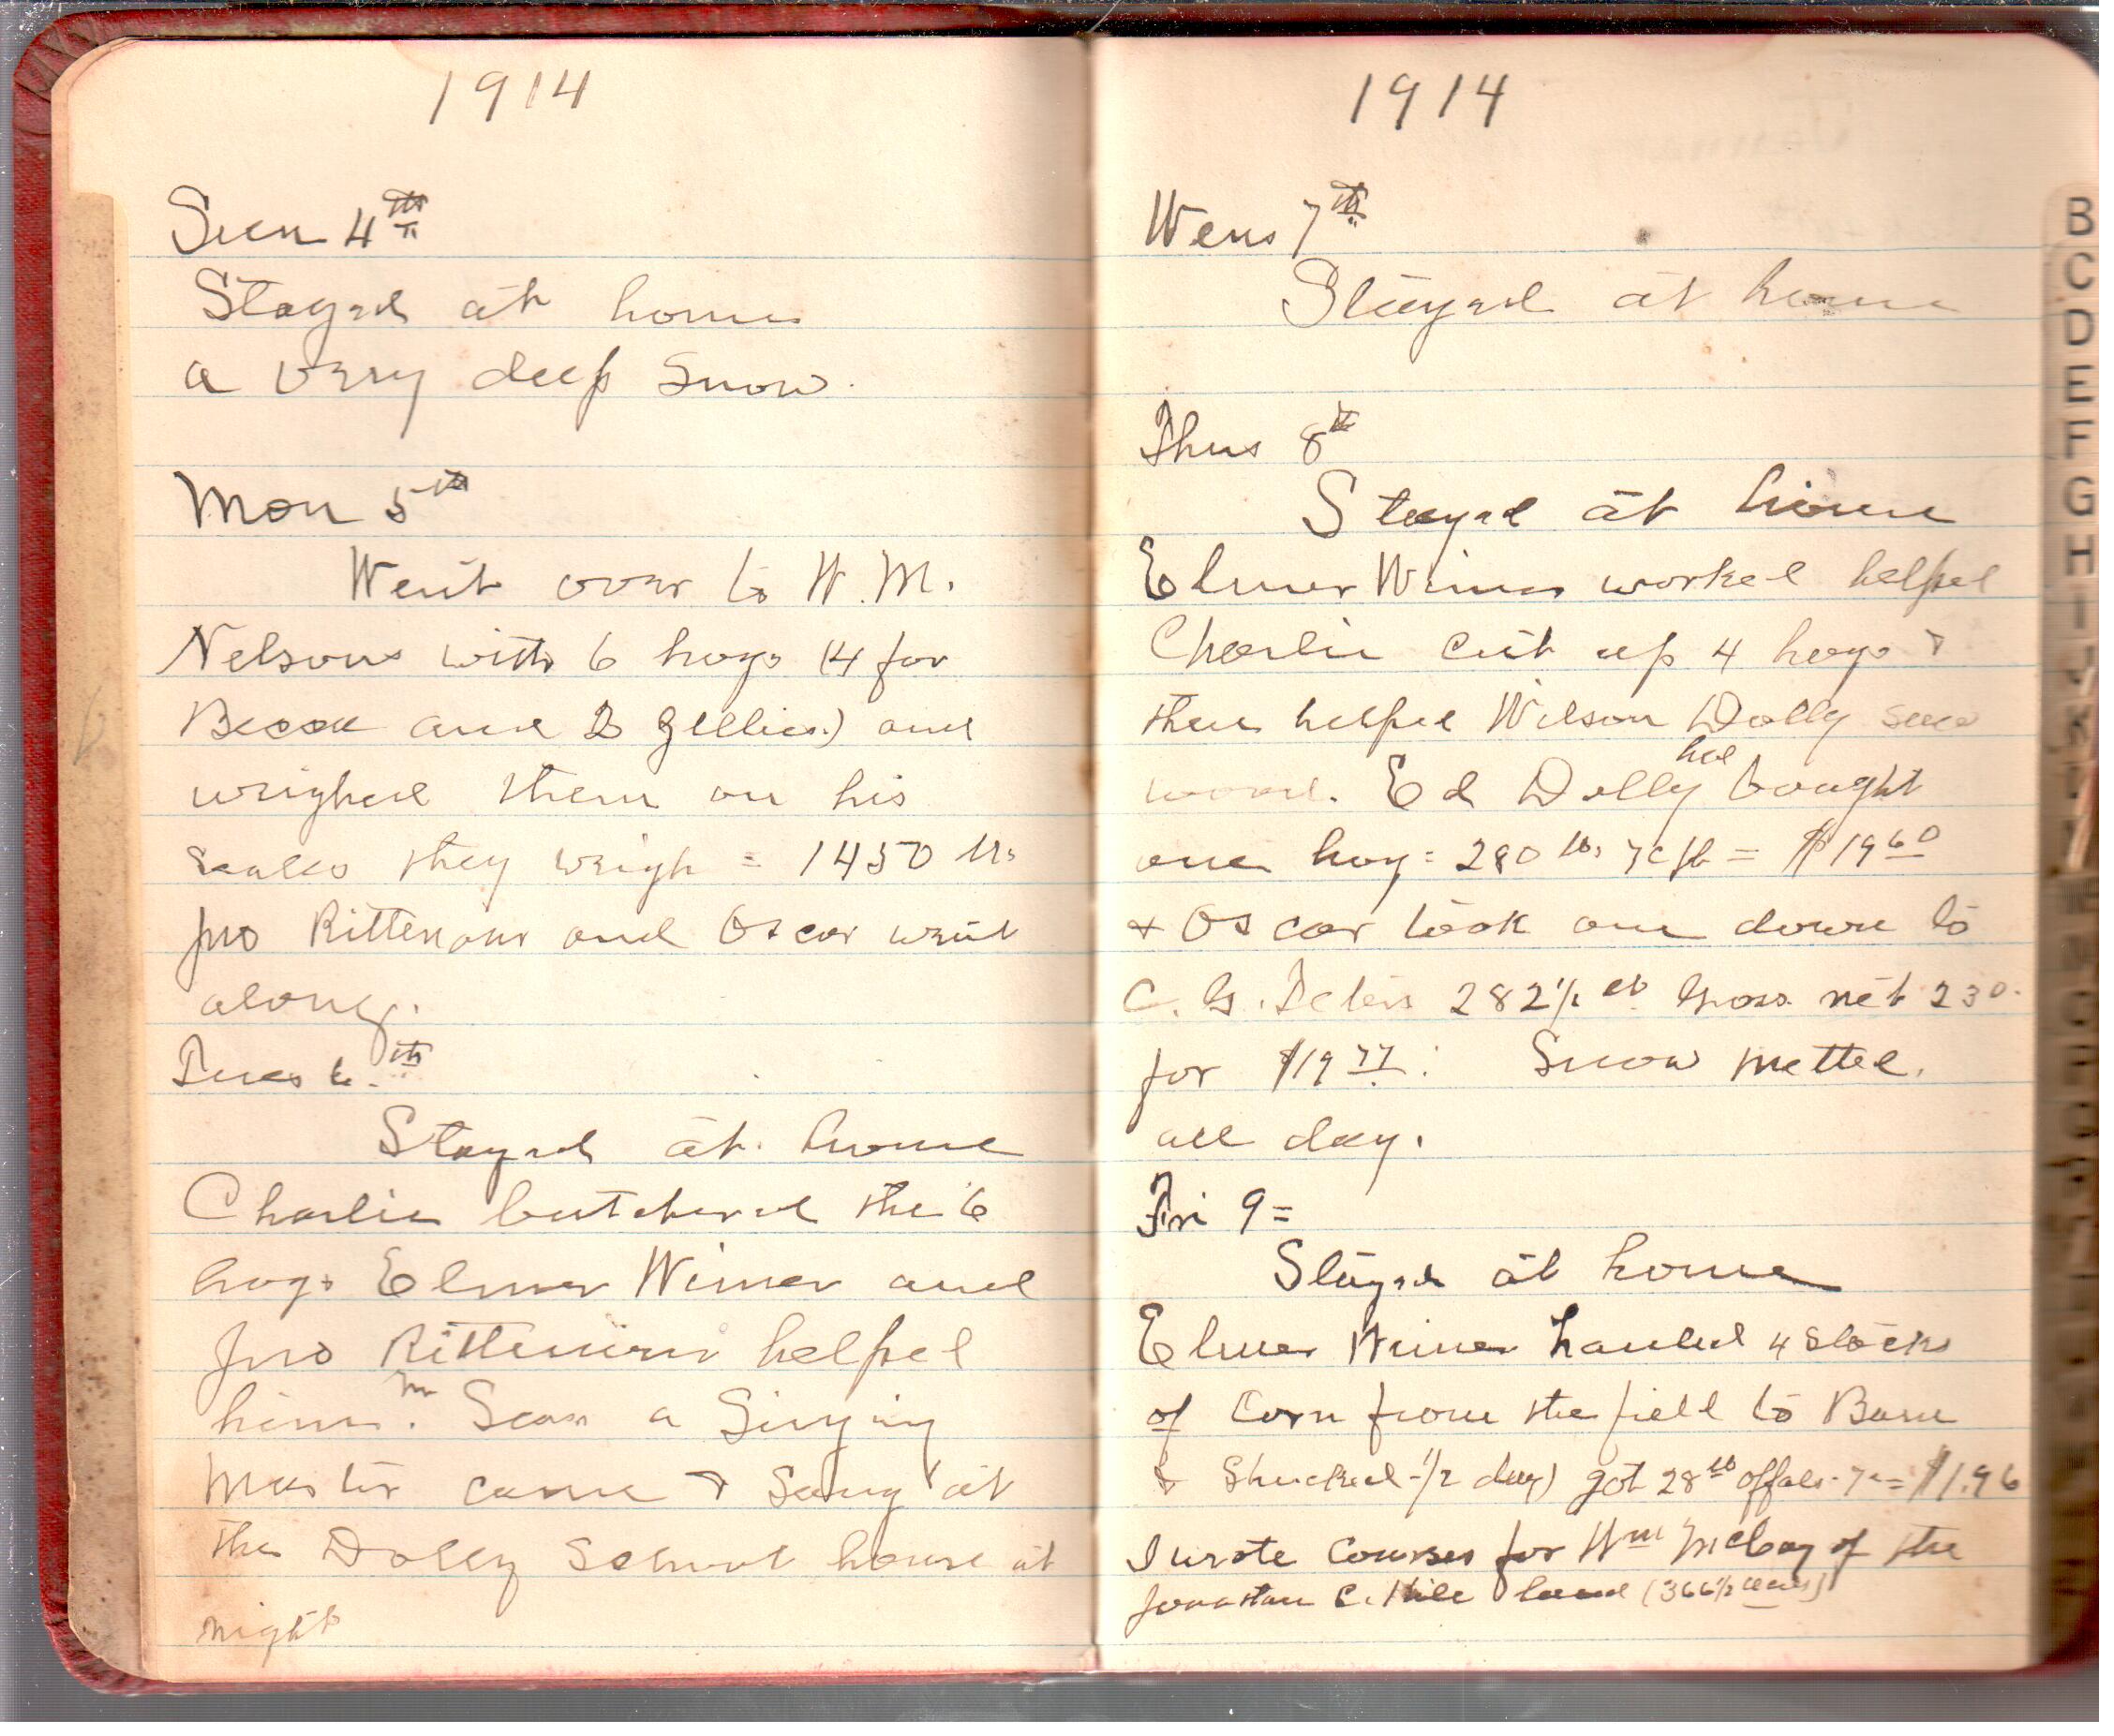 1914
Sun 4th
Stayed at home
a very deep snow.
Mon 5th
Went over to W. M.
Nelsons with 6 hogs (4 for
and 2 ) and
weighed them on his
scales they weigh = 1450 lbs
Jno Rittenour and Oscar went
along.
Tues 6th
Stayed at home
Charlie butchered the 6
hogs Elmer Wimer and
Jno Rittenour helped
him. Mr a Singing
Master came & Sang at
the Dolly School house at
night
1914
Wens 7th
Stayed at home
Thus 8th
Stayed at home
Elmer Wimer worked helped
Charlie cut up 4 hogs &
then helped Wilson Dolly saw
wood. Ed Dolly had bought
one hog = 280 lbs 7c lb = $19 60
& Oscar took one down to
C. G. 282 1/2 lb Gross net 230
for $19 77. Snow melted.
all day.
Fri 9=
Stayed at home
Elmer Wimer hauled 4 Stocks
of Corn from the field to Barn
& Shucked 1/2 day) got 28 lb offals 7c = $1.96
I wrote Courses for Wm McCoy of the
Jonathan C. Hile land (366 1/2 acres)
B
C
D
E
F
G
H
I
J
K
L